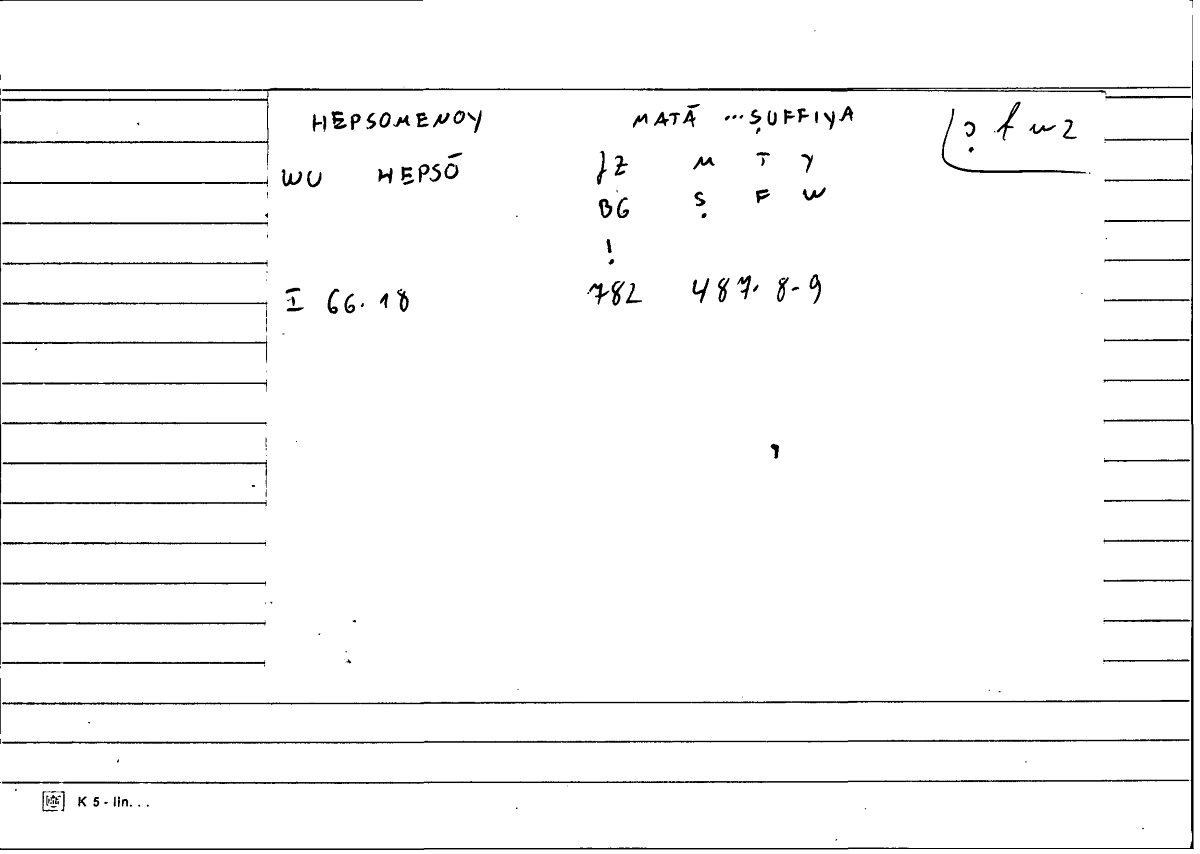 HEPSOMENOY MATĀ ... ṢUFFIYA
WU HEPSŌ ƷZ M T Y
BG Ṣ F W
!
I 66.18 782 487. 8-9
K 5 - lin. . .